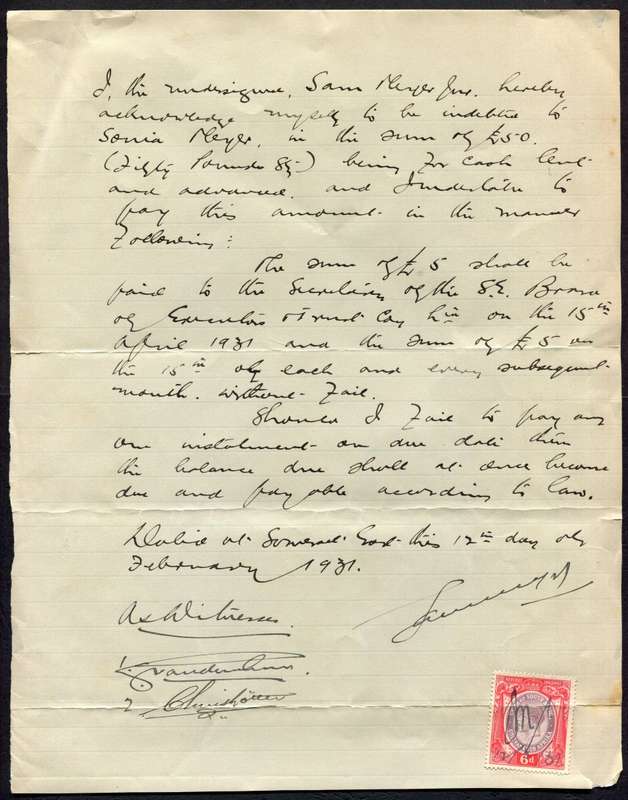 I, the undersigned, Sam Meyer Jnr. hereby
acknowledge myself to be indebted to
Sonia Meyer, in the sum of £50.
(Fifty Pounds Stg) being for cash lent
and advanced and I undertake to
pay this amount in the manner
following:
The sum of £5 shall be
paid to the Secretary of the S.E. Board
of Executors & Trust Coy Ltd on the 15th
April 1931 and the sum of £5 on
the 15th of each and every subsequent
month. without fail.
Should I fail to pay any
one instalment on due date then
the balance due shall at once become
due and payable according to law.
Dated at Somerset East this 12th day of
February 1931.
As Witnesses.
2
6d